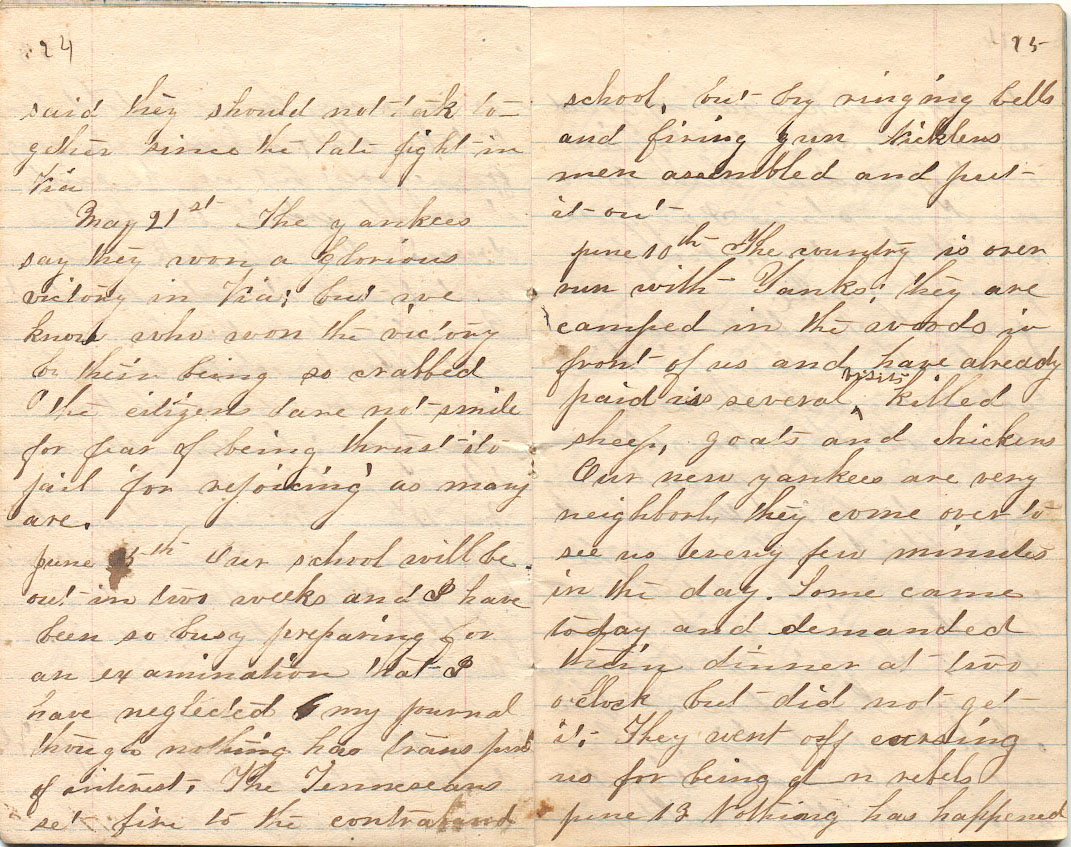 24
said they should not talk to-
gether since the late fight in
Via
May 21st The yankees
say they won a glorious
victory in Via; but we
know who won the victory
by their being so crabbed
the citizens dare not smile
for fear of being thrust ito
jail for rejoicing as many
are.
june 5th Our school will be
out in two weeks and I have
been so busy preparing for
an examination that I
have neglected my journal
though nothing has transpired
of interest. The Tenneseans
set fire to the contraband
25
school, but by ringing bells
and firing gun
men assembled and put
it out
june 10th The country is over
run with Yanks; they are
camped in the woods in
front of us and have already
paid us several visits killed
sheep, goats and chickens
Our new yankees are very
neighborly they come over to
see us every few minutes
in the day. Some came
today and demanded
their dinner at two
o'clock but did not get
it. They went off cursing
us for being d n rebels
june 13 Nothing has happened